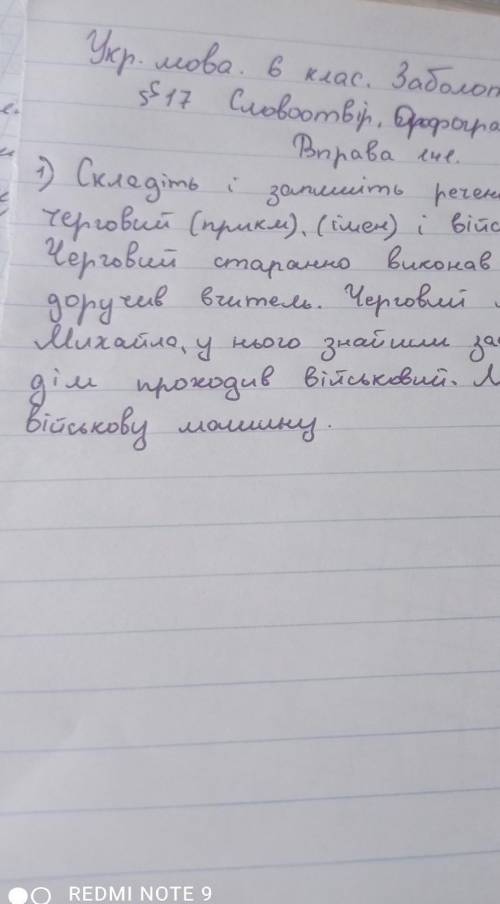 Укр. мова. 6 клас. Заболот
§17 Словотвір. Орфогра
Вправа
1) Складіть і запишіть речен
черговий (прикм), (імен) і війс
Черговий старанно виконав
доручив вчитель. Черговий
Михайло, у нього знайшли за
дім проходив військовий.
військову машину.
REDMI NOTE 9